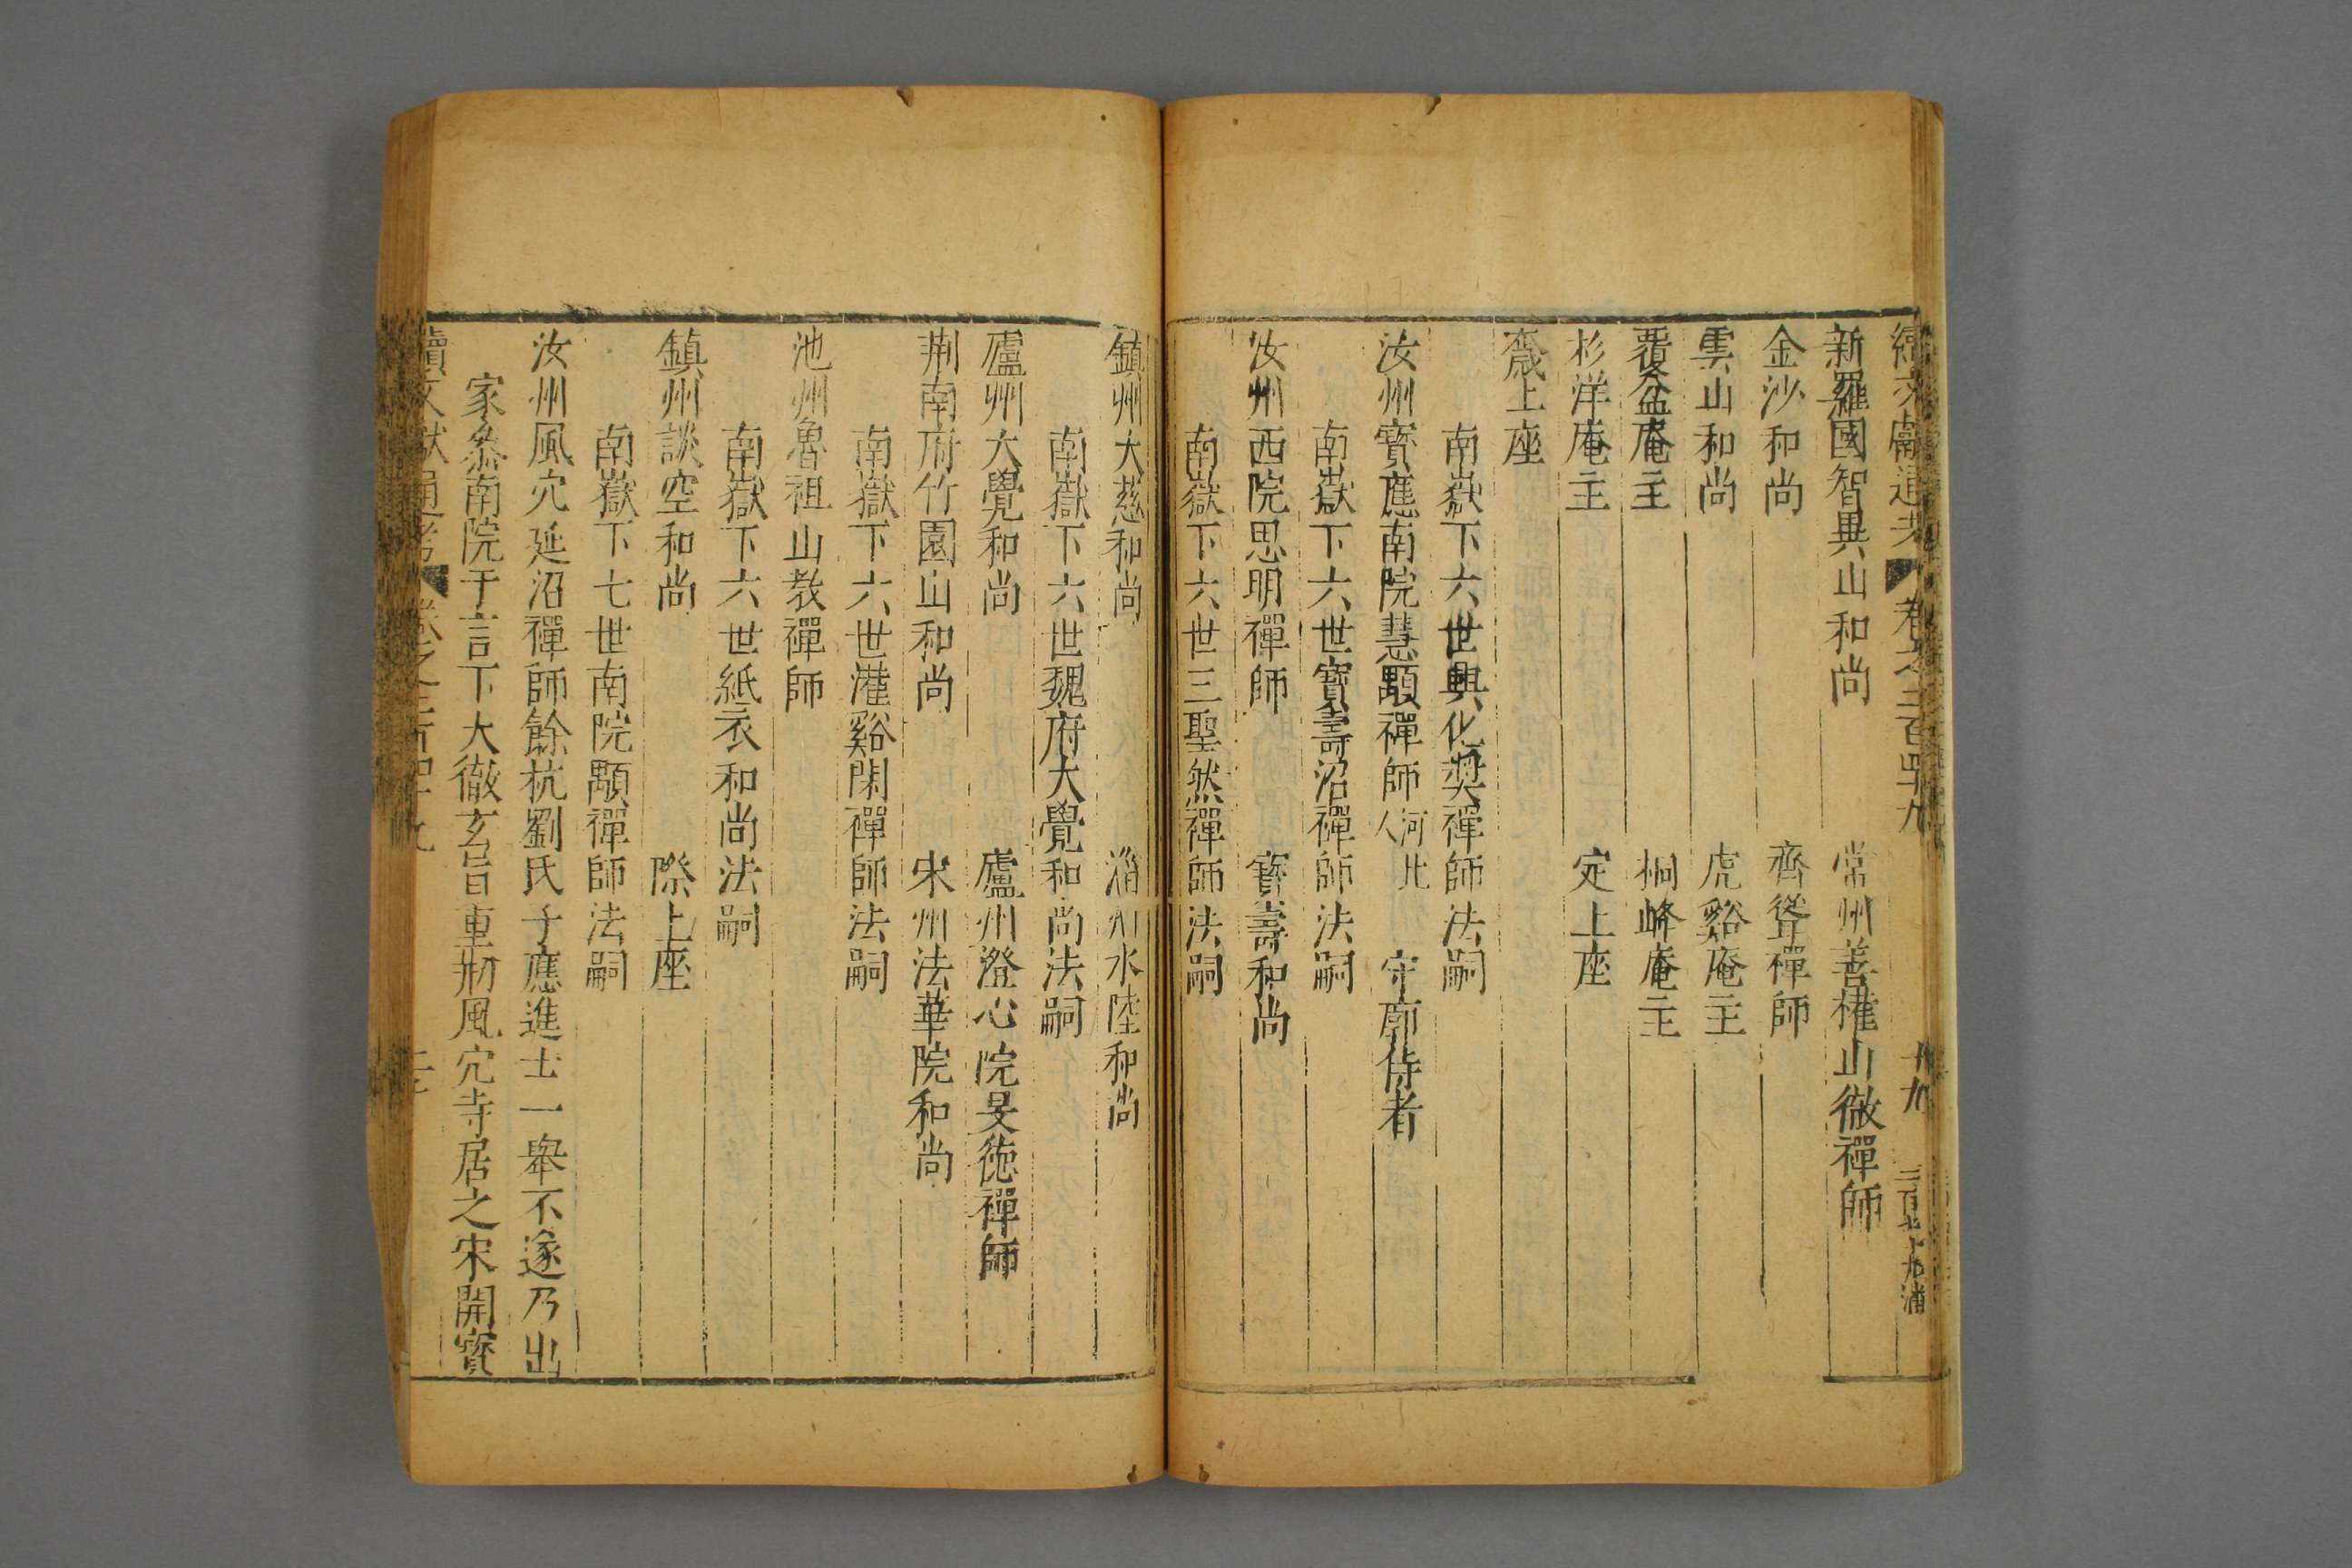 續文獻通考 卷之二百四十九 十九 三百七十九 浦
新羅國智異山和尚 常州善權山徹禪師
金沙和尚 齊聳禪師
雲山和尚 虎谿庵主
覆盆庵主 桐峰庵主
杉洋庵主 定上座
奯上座
南嶽下六世興化奬禪師法嗣
汝州寶應南院慧顒禪師 河北人 守廓侍者
南嶽下六世寶壽沼禪師法嗣
汝州西院思明禪師 寶壽和尚
南嶽下六世三聖然禪師法嗣
鎮州大慈和尚 淄州水陸和尚
南嶽下六世魏府大覺和尚法嗣
廬州大覺和尚 廬州澄心院旻德禪師
荆南府竹園山和尚 宋州法華院和尚
南嶽下六世灌谿閑禪師法嗣
池州魯祖山教禪師
南嶽下六世紙衣和尚法嗣
鎮州談空和尚 際上座
南嶽下七世南院顒禪師法嗣
汝州風穴延沼禪師餘杭劉氏子應進士一舉不遂乃出
家叅南院于言下大徹玄旨重剏風穴寺居之宋開寶
續文獻通考 卷之二百四十九